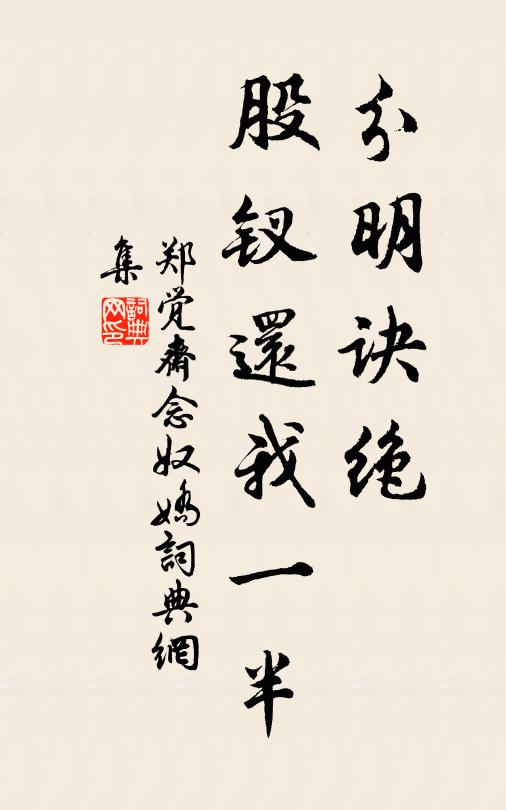 分明诀绝
股钗還我一半
郑觉斋念奴娇詞典網
集
詞典网印